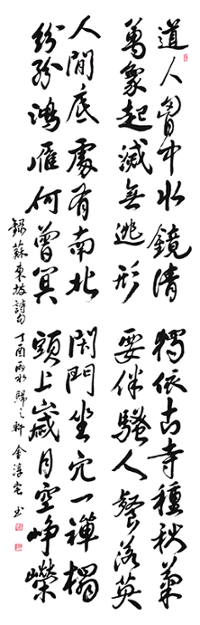 道人胷中水鏡清
萬象起滅無逃形
獨依古寺種秋菊
要伴騷人餐落英
人間底處有南北
紛紛鴻雁何曾冥
閉門坐穴一禪榻
頭上歲月空崢嶸
錄蘇東坡詩句 丁酉雨水 歸之軒 金淳宅 书